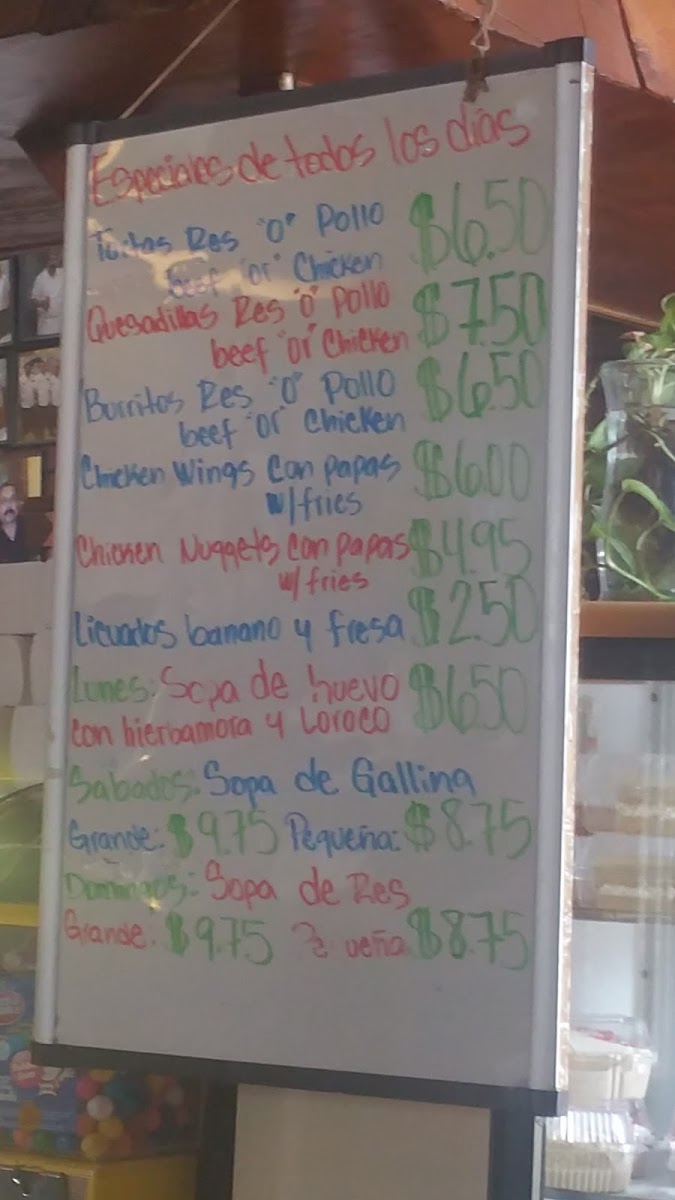 Especiales de todos los días
Tortas Res "O" Pollo $6.50
beef "or" Chicken
Quesadillas Res "O" Pollo $7.50
beef "or" Chicken
Burritos Res "O" Pollo $6.50
beef "or" Chicken
Chicken Wings Con papas $6.00
w/fries
Chicken Nuggets Con papas $4.95
w/ fries
Licuados banano y fresa $2.50
Lunes: Sopa de huevo $6.50
con hierbamora y Loroco
Sabados: Sopa de Gallina
Grande: $9.75 Pequeña: $8.75
Domingos: Sopa de Res
Grande: $9.75 $8.75